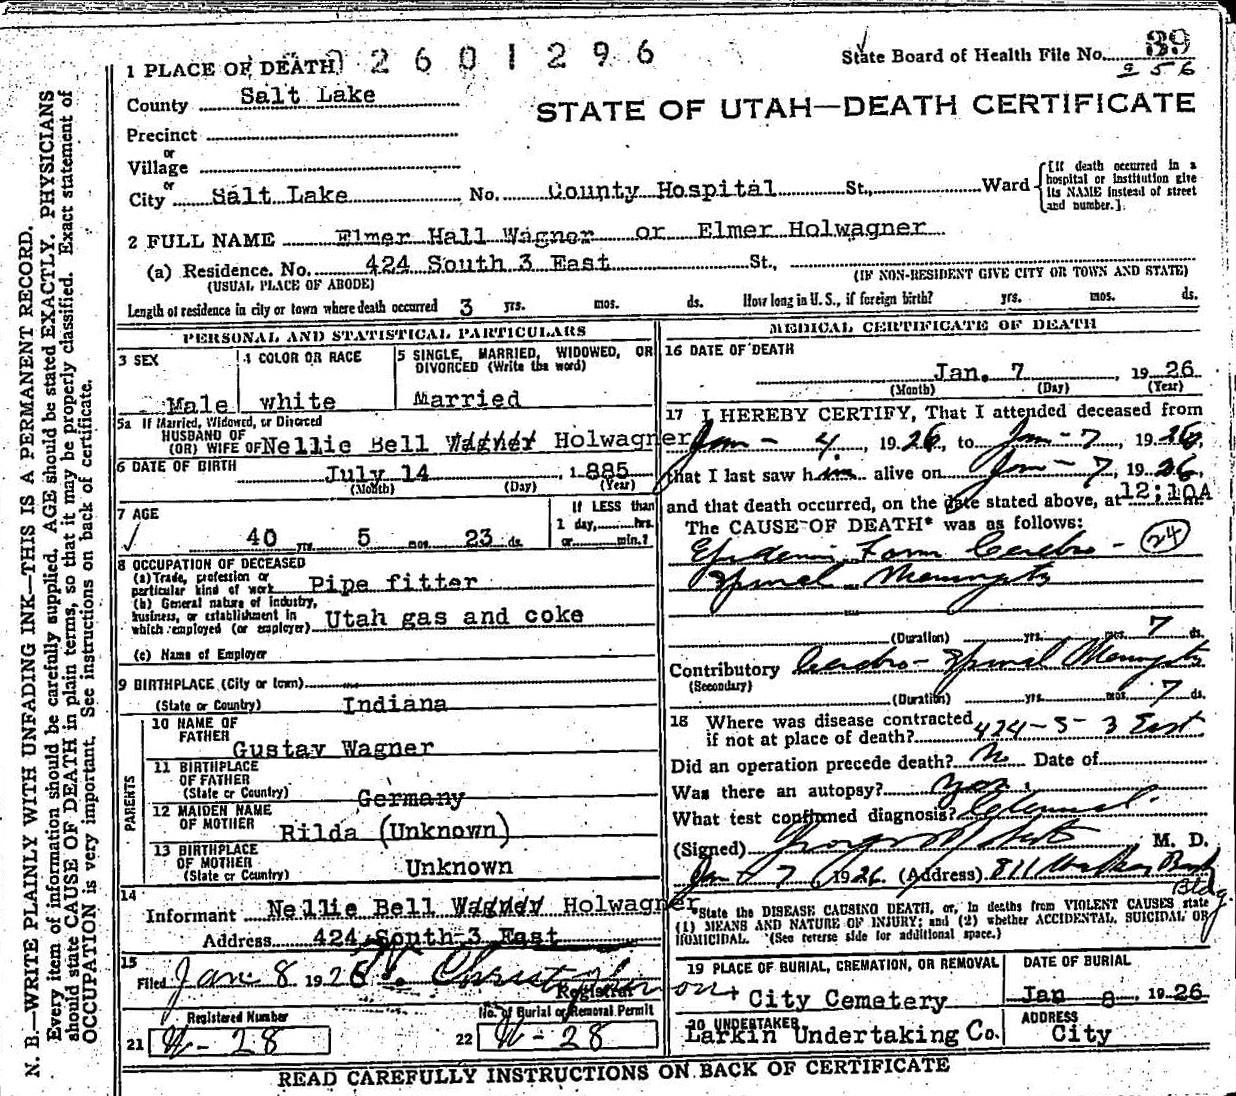 2601296
State Board of Health File No. 39
256
1 PLACE OF DEATH
County Salt Lake
STATE OF UTAH—DEATH CERTIFICATE
Precinct
or
Village
or
City Salt Lake No. County Hospital St., Ward
[If death occurred in a hospital or institution give its NAME instead of street and number.]
2 FULL NAME Elmer Hall Wagner or Elmer Holwagner
(a) Residence. No. 424 South 3 East St.,
(USUAL PLACE OF ABODE) (IF NON-RESIDENT GIVE CITY OR TOWN AND STATE)
Length of residence in city or town where death occurred 3 yrs. mos. ds. How long in U. S., if foreign birth? yrs. mos. ds.
PERSONAL AND STATISTICAL PARTICULARS
3 SEX
Male
4 COLOR OR RACE
white
5 SINGLE, MARRIED, WIDOWED, OR
DIVORCED (Write the word)
Married
5a If Married, Widowed, or Divorced
HUSBAND OF
(OR) WIFE OF Nellie Bell Wagner Holwagner
6 DATE OF BIRTH July 14 1885
(Month) (Day) (Year)
7 AGE
40 yrs. 5 mos. 23 ds.
If LESS than
1 day, hrs.
or min.?
8 OCCUPATION OF DECEASED
(a) Trade, profession or
particular kind of work Pipe fitter
(b) General nature of industry,
business, or establishment in
which employed (or employer) Utah gas and coke
(c) Name of Employer
9 BIRTHPLACE (City or town)
(State or Country) Indiana
PARENTS
10 NAME OF
FATHER
Gustav Wagner
11 BIRTHPLACE
OF FATHER
(State or Country) Germany
12 MAIDEN NAME
OF MOTHER Rilda (Unknown)
13 BIRTHPLACE
OF MOTHER
(State or Country) Unknown
14
Informant Nellie Bell Wagner Holwagner
Address 424 South 3 East
15
Filed Jan 8 1926
Registrar
Registered Number
21 W-28
No. of Burial or Removal Permit
22 W-28
MEDICAL CERTIFICATE OF DEATH
16 DATE OF DEATH
Jan. 7, 1926
(Month) (Day) (Year)
17 I HEREBY CERTIFY, That I attended deceased from
Jan - 4, 1926, to Jan - 7, 1926,
that I last saw him alive on Jan - 7, 1926,
and that death occurred, on the date stated above, at 12:10A m.
The CAUSE OF DEATH* was as follows:
Epidemic Form Cerebro - 24
Spinal Meningitis
(Duration) yrs. mos. 7 ds.
Contributory Cerebro-Spinal Meningitis
(Secondary)
(Duration) yrs. mos. 7 ds.
18 Where was disease contracted
if not at place of death? 424-S-3 East
Did an operation precede death? No Date of
Was there an autopsy?
What test confirmed diagnosis?
(Signed) M. D.
Jan - 7, 1926 (Address) 811 Walker Bank
Bldg.
*State the DISEASE CAUSING DEATH, or, in deaths from VIOLENT CAUSES state
(1) MEANS AND NATURE OF INJURY; and (2) whether ACCIDENTAL, SUICIDAL OR
HOMICIDAL. (See reverse side for additional space.)
19 PLACE OF BURIAL, CREMATION, OR REMOVAL
City Cemetery
DATE OF BURIAL
Jan 8, 1926
20 UNDERTAKER
Larkin Undertaking Co.
ADDRESS
City
READ CAREFULLY INSTRUCTIONS ON BACK OF CERTIFICATE
N. B.—WRITE PLAINLY WITH UNFADING INK—THIS IS A PERMANENT RECORD.
Every item of information should be carefully supplied. AGE should be stated EXACTLY. PHYSICIANS
should state CAUSE OF DEATH in plain terms, so that it may be properly classified. Exact statement of
OCCUPATION is very important. See instructions on back of certificate.